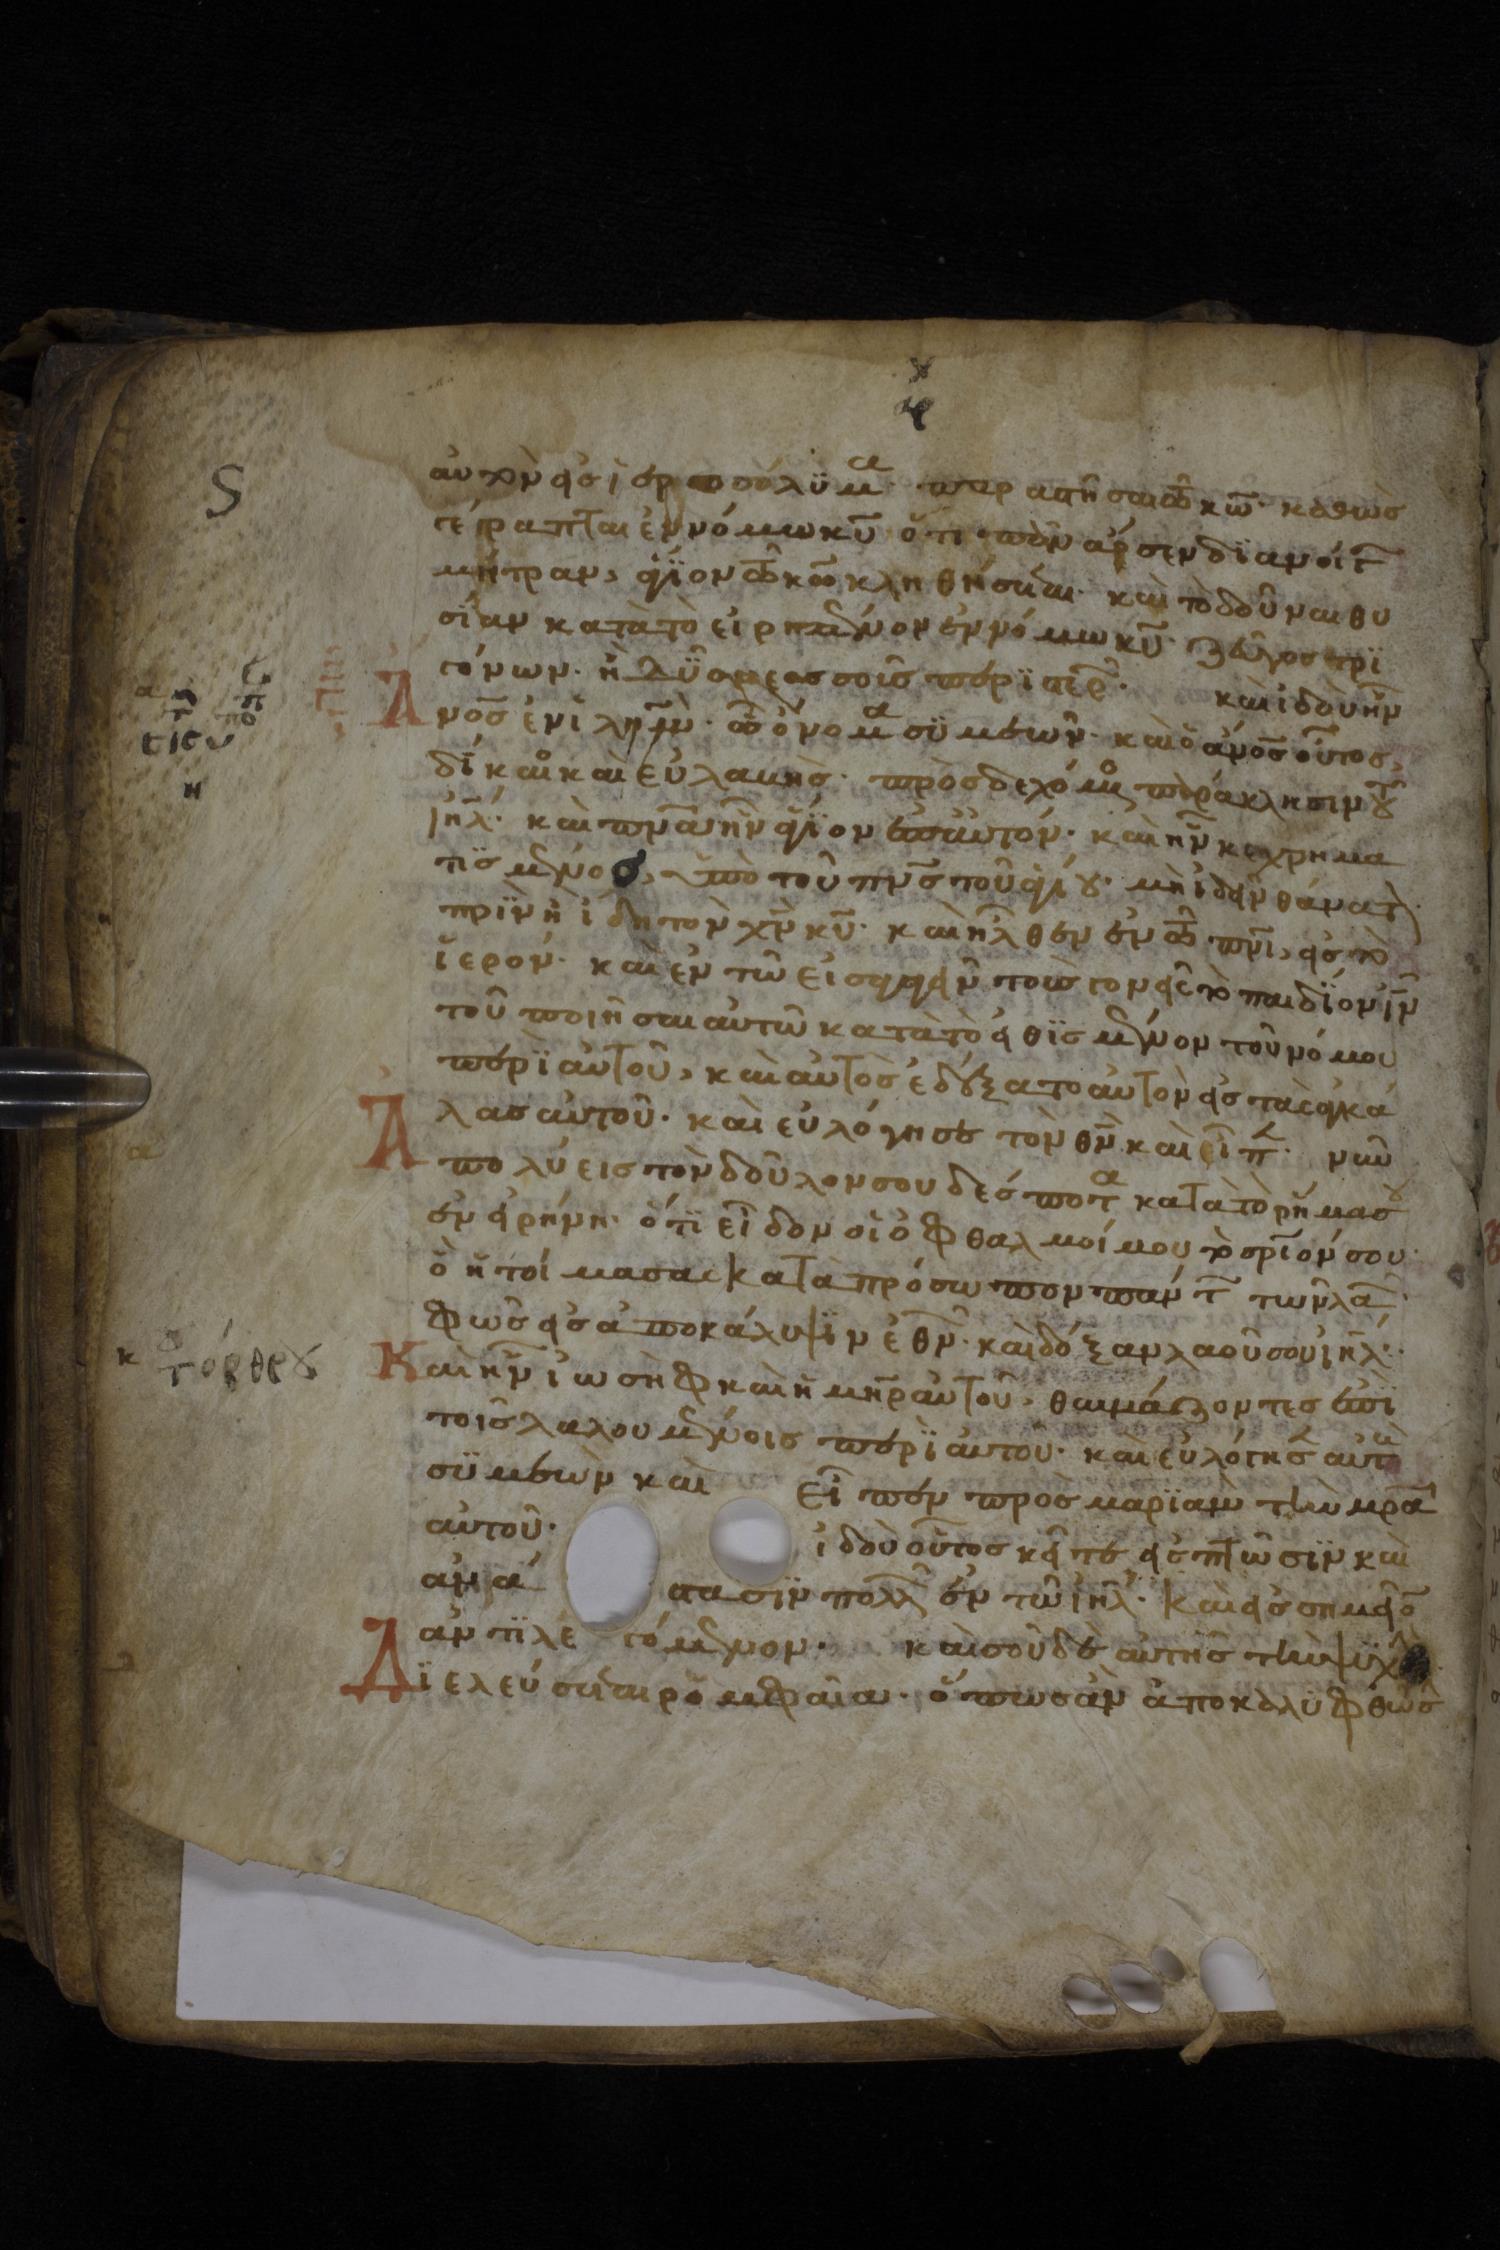 αὐτὸν εἰς ἱεροσόλϋμα· παραστῆσαι τῶ κω̅· καθὼς
γέγραπται ἐν νόμω κυ̅ ὅτι πᾶν ἄρσεν διανοίγ
μήτραν, ἅγϊον τῶ κω̅ κληθήσεται· καὶ τὸ δοῦναι θυ
σΐαν κατὰ τὸ εἰρημένον ἐν νόμω κυ̅· ζεῦγος τρϊ
γόνων· ἢ δϋο νεοσσοὺς περϊστερ· καὶ ἰδοὺ ἦν
Ἄνος ἐν ϊλημ· ὧ ὄνομα σϋμεών· καὶ ὁ ἄνος οὗτος,
δίκαιος καὶ εὐλαβὴς· πρὸσδεχόμενος παράκλησιν τοῦ
ιηλ· καὶ πνα ἦν ἅγϊον ἐπ αὐτόν· καὶ ἦν κεχρημα
τϊσμένος, ὑπὸ τοῦ πνς τοῦ ἁγίου· μὴ ἰδεῖν θάνατον
πρϊν ἢ ἴδη τὸν χν κυ· καὶ ἦλθεν ἐν τῶ πνι, εἰς τὸ
ἱερόν· καὶ ἐν τῶ εἰσαγαγεῖν τοὺς γονεῖς τὸ παιδΐον ιν
τοῦ ποιῆσαι αὐτῶ κατὰ τὸ εἰθϊσμένον τοῦ νόμου
περϊ αὐτοῦ, καὶ αὐτὸς ἐδέξατο αὐτὸν εἰς τὰς ἀγκά
λας αὐτοῦ· καὶ εὐλόγησε τὸν θν καὶ εἶπε· νῦν
Ἀπολύεις τὸν δοῦλον σου δέσποτα κατὰ τὸ ρῆμα σου
ἐν εἰρήνη· ὅτϊ εἶδον οἱ ὀφθαλμοί μου τὸ σριόν σου·
ὃ ἡτοίμασας κατὰ πρόσωπον πάντ τῶν λα·
φῶς εἰς ἀποκάλυψϊν ἐθν· καὶ δόξαν λαοῦ σου ιηλ·
Καὶ ἦν ἰωσὴφ καὶ ἡ μηρ αὐτοῦ, θαυμάζοντες ἐπϊ
τοῖς λαλουμένοις περϊ αὐτοῦ· καὶ εὐλόγησεν αὐτ
σϋμεὼν καὶ εἶπεν πρὸς μαρϊὰμ τὴν μρα
αὐτοῦ· ἰδοὺ οὗτος κεῖται εἰς πτῶσϊν καὶ
ἀνά στασϊν πολλ ἐν τῶ ιηλ· καὶ εἰς σημεῖο
ἀντϊλε γόμενον· καὶ σοῦ δὲ αὐτῆς τὴν ψϋχὴν
Δϊελεύσεται ρομφαία· ὅπως ἂν ἀποκαλϋφθῶσ